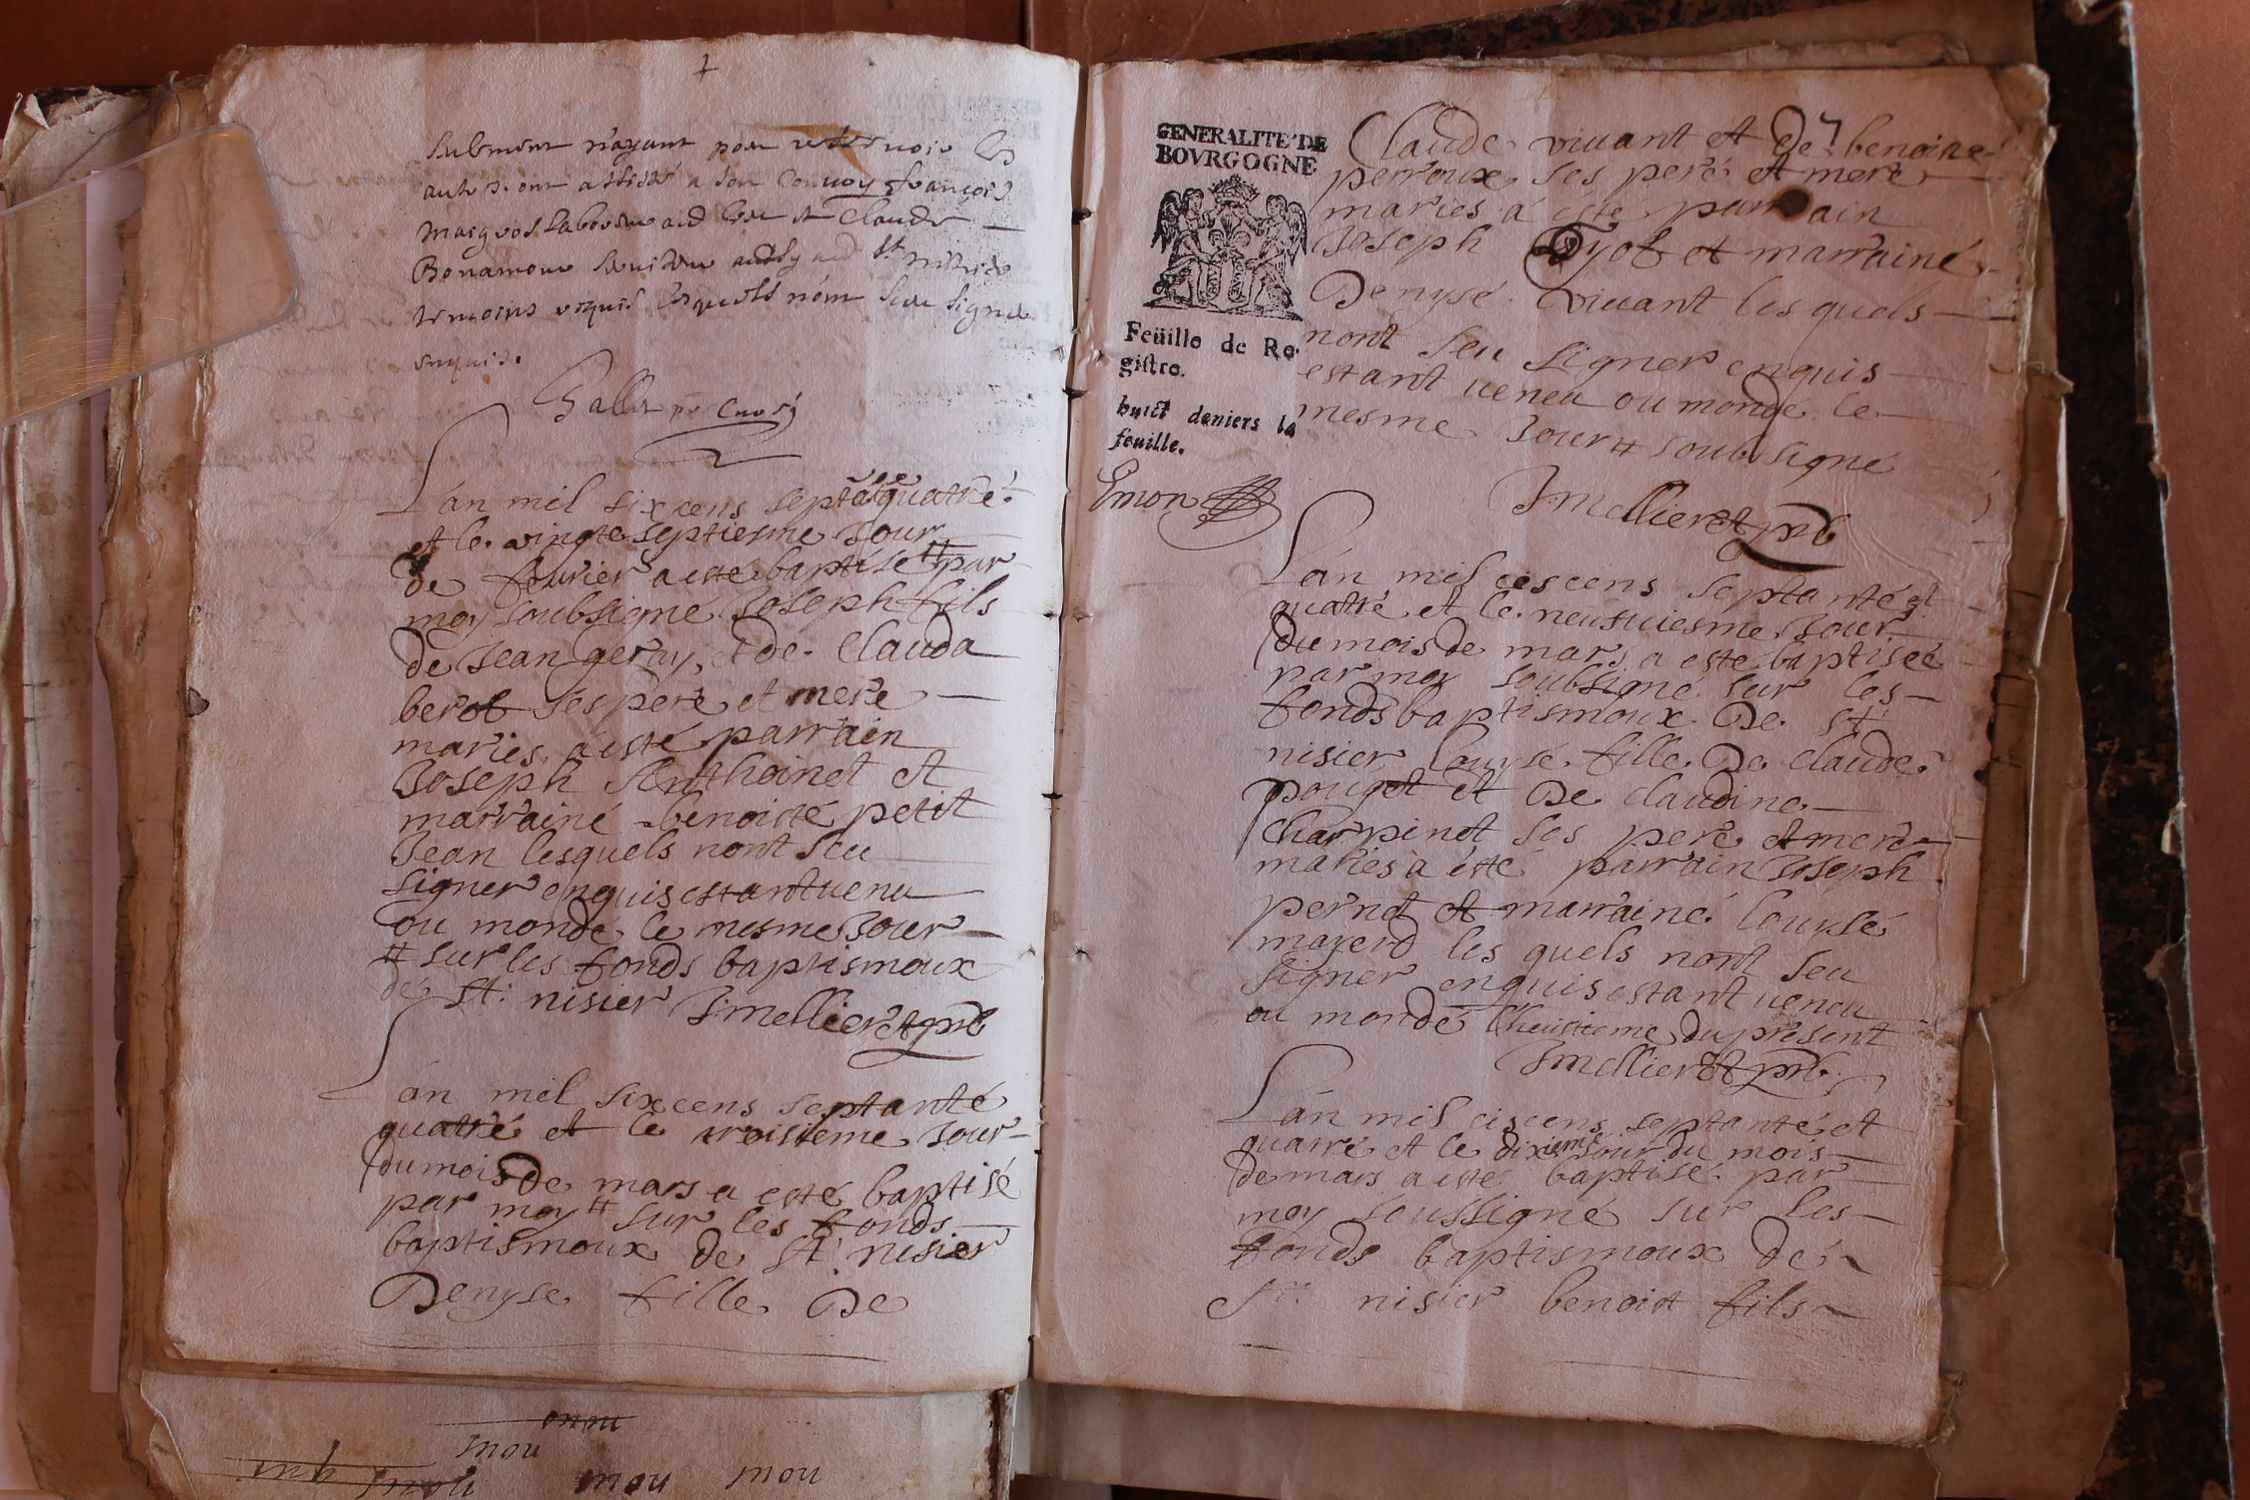 n'ayant peu
autres ont assisté a son convoy françois
laboureur aud lieu et Claude
Bonamour aud St nisier
temoins requis lesquels n'ont sceu signer
enquis.
L'an mil six cens septãte quatré
et le vingte septiesme Jour
de feurier a esté baptisé # par
moy soubsigné Joseph fils
de Jean geray, et de Clauda
berot ses peré et mere
maries, a esté parrain
Joseph Anthoinet et
marrainé benoisté petit
Jean lesquels nont seu
signer enquis estant venu
ou mondé le mesme Jour
# sur les fonds baptismoux
de St: nisier J mellieret pbr
L'an mil six cens septanté
quatré et le troisieme Jour
du mois de mars a esté baptisé
par moy # sur les fonds
baptismoux de St. nisier
Denyse fille De
onou
mou
mou mou mou
GENERALITE' DE
BOVRGOGNE
Feüille de Re-
gistre.
huict deniers la
feuille.
Emon
Claude viuant et De benoite
perroux ses peré et meré
maries a esté parrain
Joseph Tyot et marrainé
Denysé viuant les quels
nont seu signer enquis
estant ueneu ou mondé le
mesme Jour # soubsigné
J mellieret pbr
L'an mil cis cens septanté et
quatré et le neufuiesme Jour
du mois de mars a esté baptiseé
par moy soubsigné sur les
fonds baptismoux De St
nisier louysé fille De Claude
pouget et De claudine
Charpinot ses peré et meré
maries a esté parrain Joseph
pernet et marrainé louysé
moyerd les quels nont seu
signer enquis estant ueneu
ou mondé l'heuitieme du present
J mellieret pbr
L'an mil cis cens septanté et
quatré et le dixieme Jour du mois
de mars a esté baptisé par
moy soussigné sur les
fonds baptismoux dé
St: nisier benoist fils